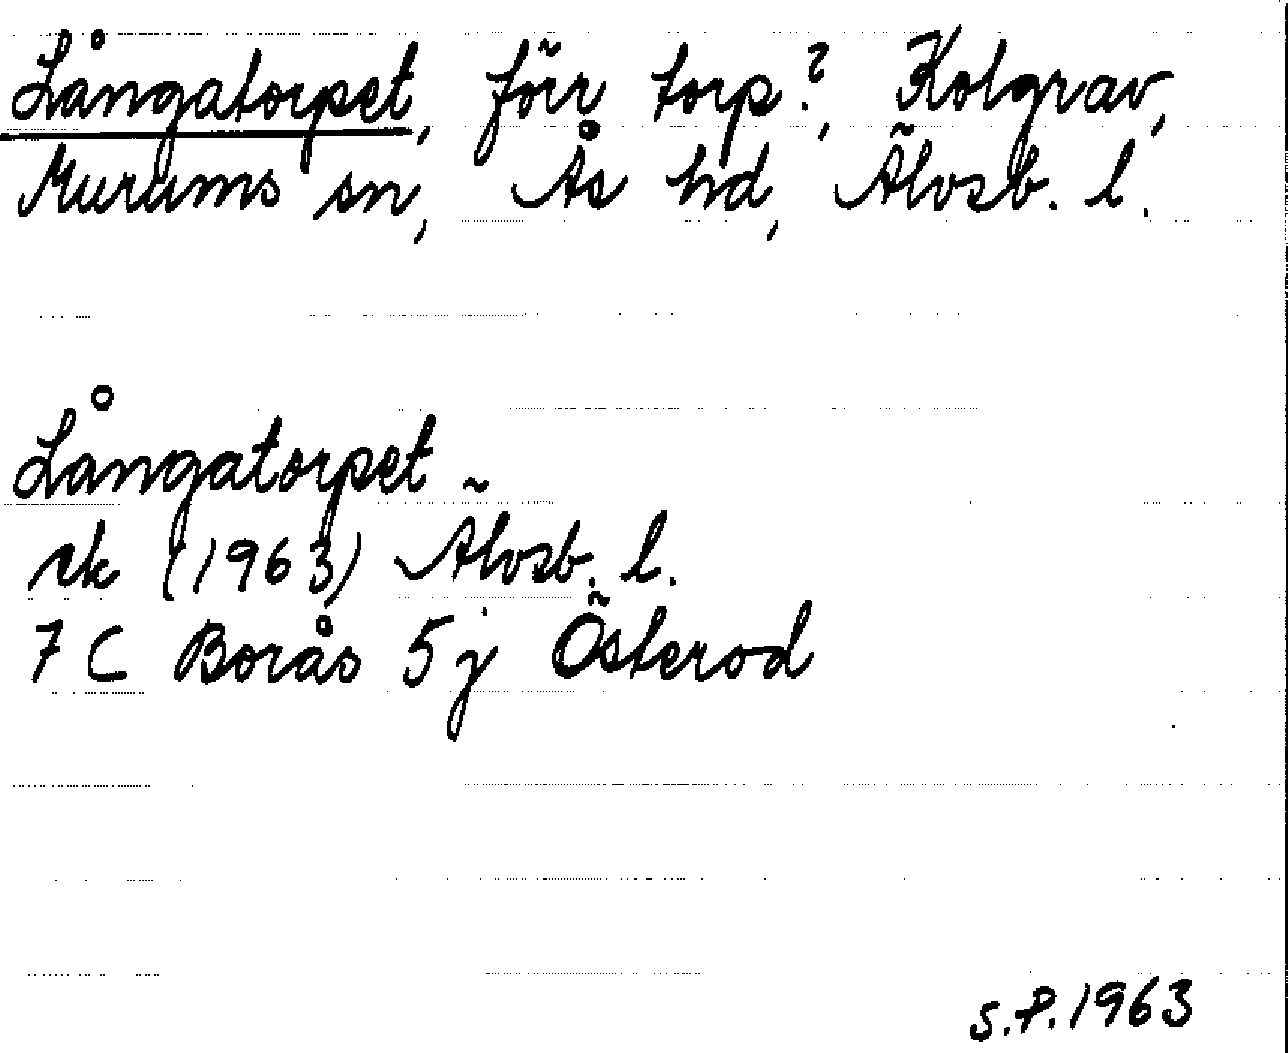 Långatorpet, förr torp?, Kolgrav,
Murums sn, Ås hd, Älvsb. l.
Långatorpet
rk (1963) Älvsb. l.
7 C Borås 5 j Österod
S.P. 1963